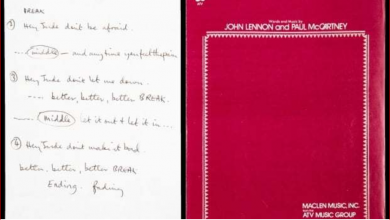 BREAK
② Hey Jude don't be afraid.
..... middle — and any time you feel the pain
③ Hey Jude don't let me down.
..... better, better, better BREAK.
..... middle let it out & let it in...
④ Hey Jude don't make it bad.
better, better, better BREAK
Ending. fading
Words and Music by
JOHN LENNON and PAUL McCARTNEY
MACLEN MUSIC, INC.
ATV MUSIC GROUP